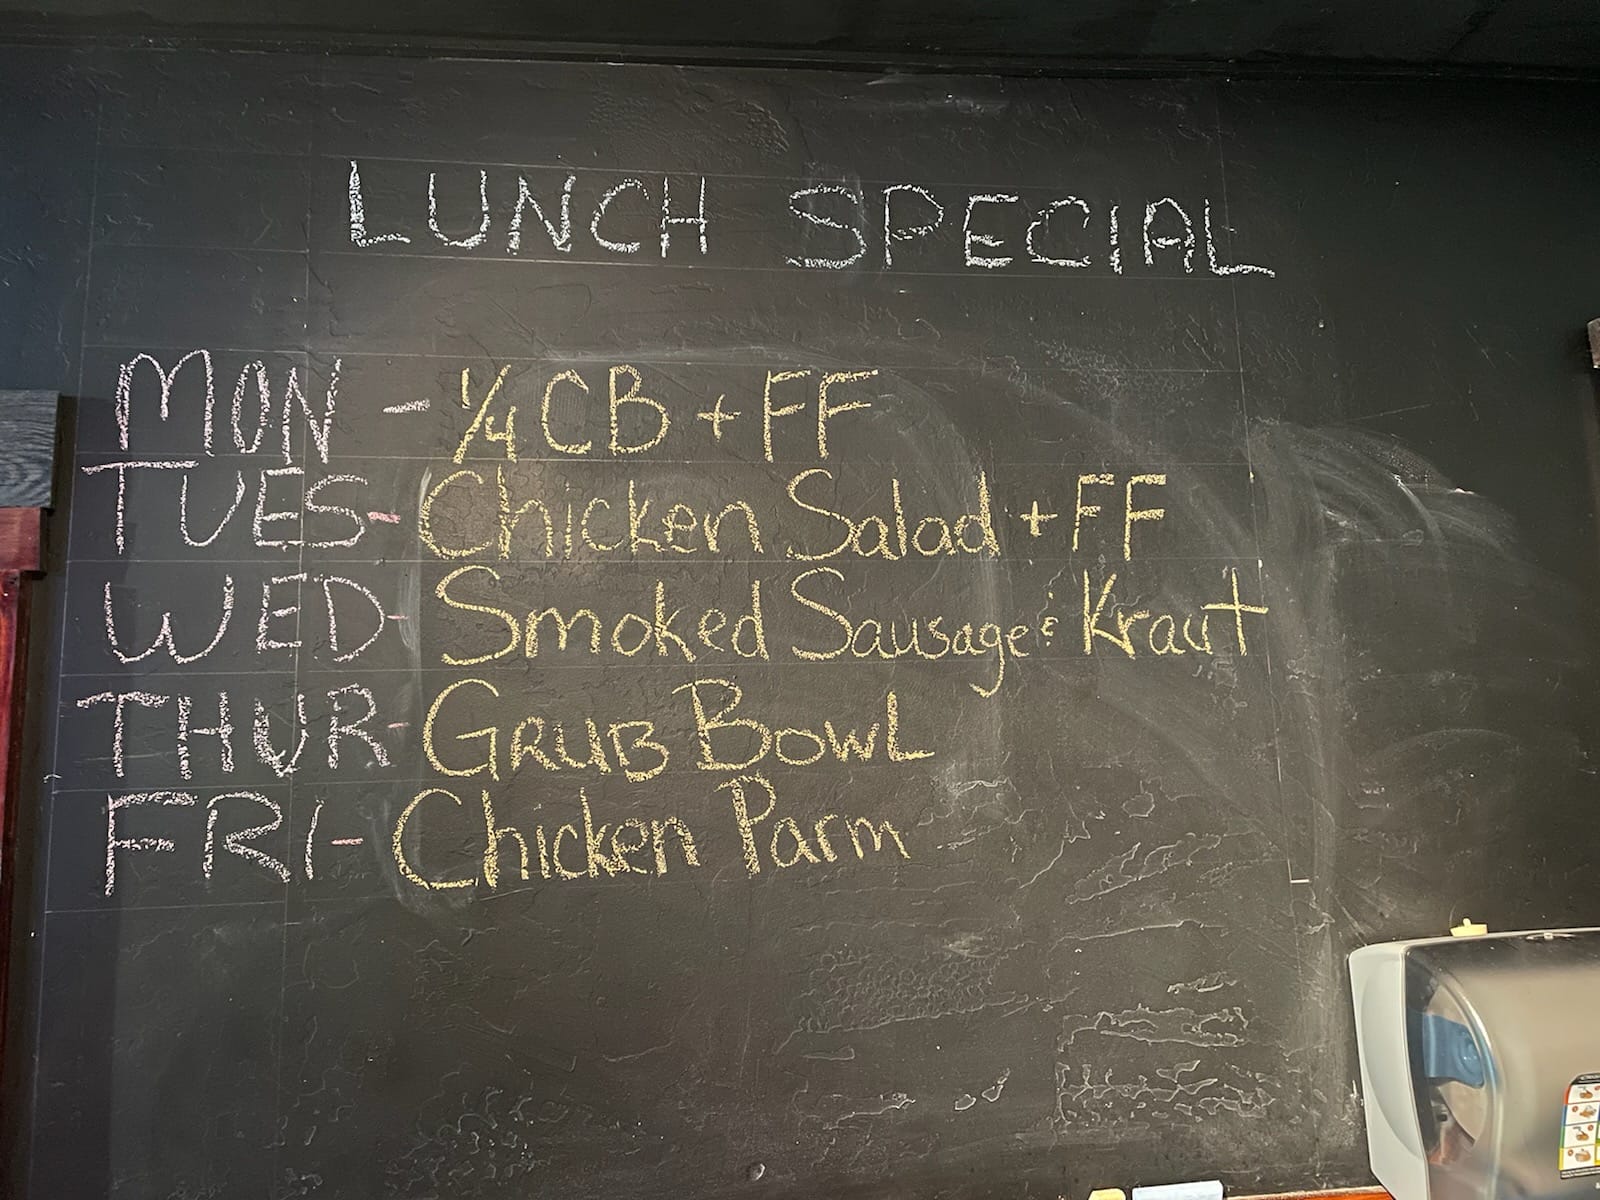 LUNCH SPECIAL
MON - 1/4 CB + FF
TUES- Chicken Salad + FF
WED- Smoked Sausage & Kraut
THUR- GRUB BOWL
FRI- Chicken Parm